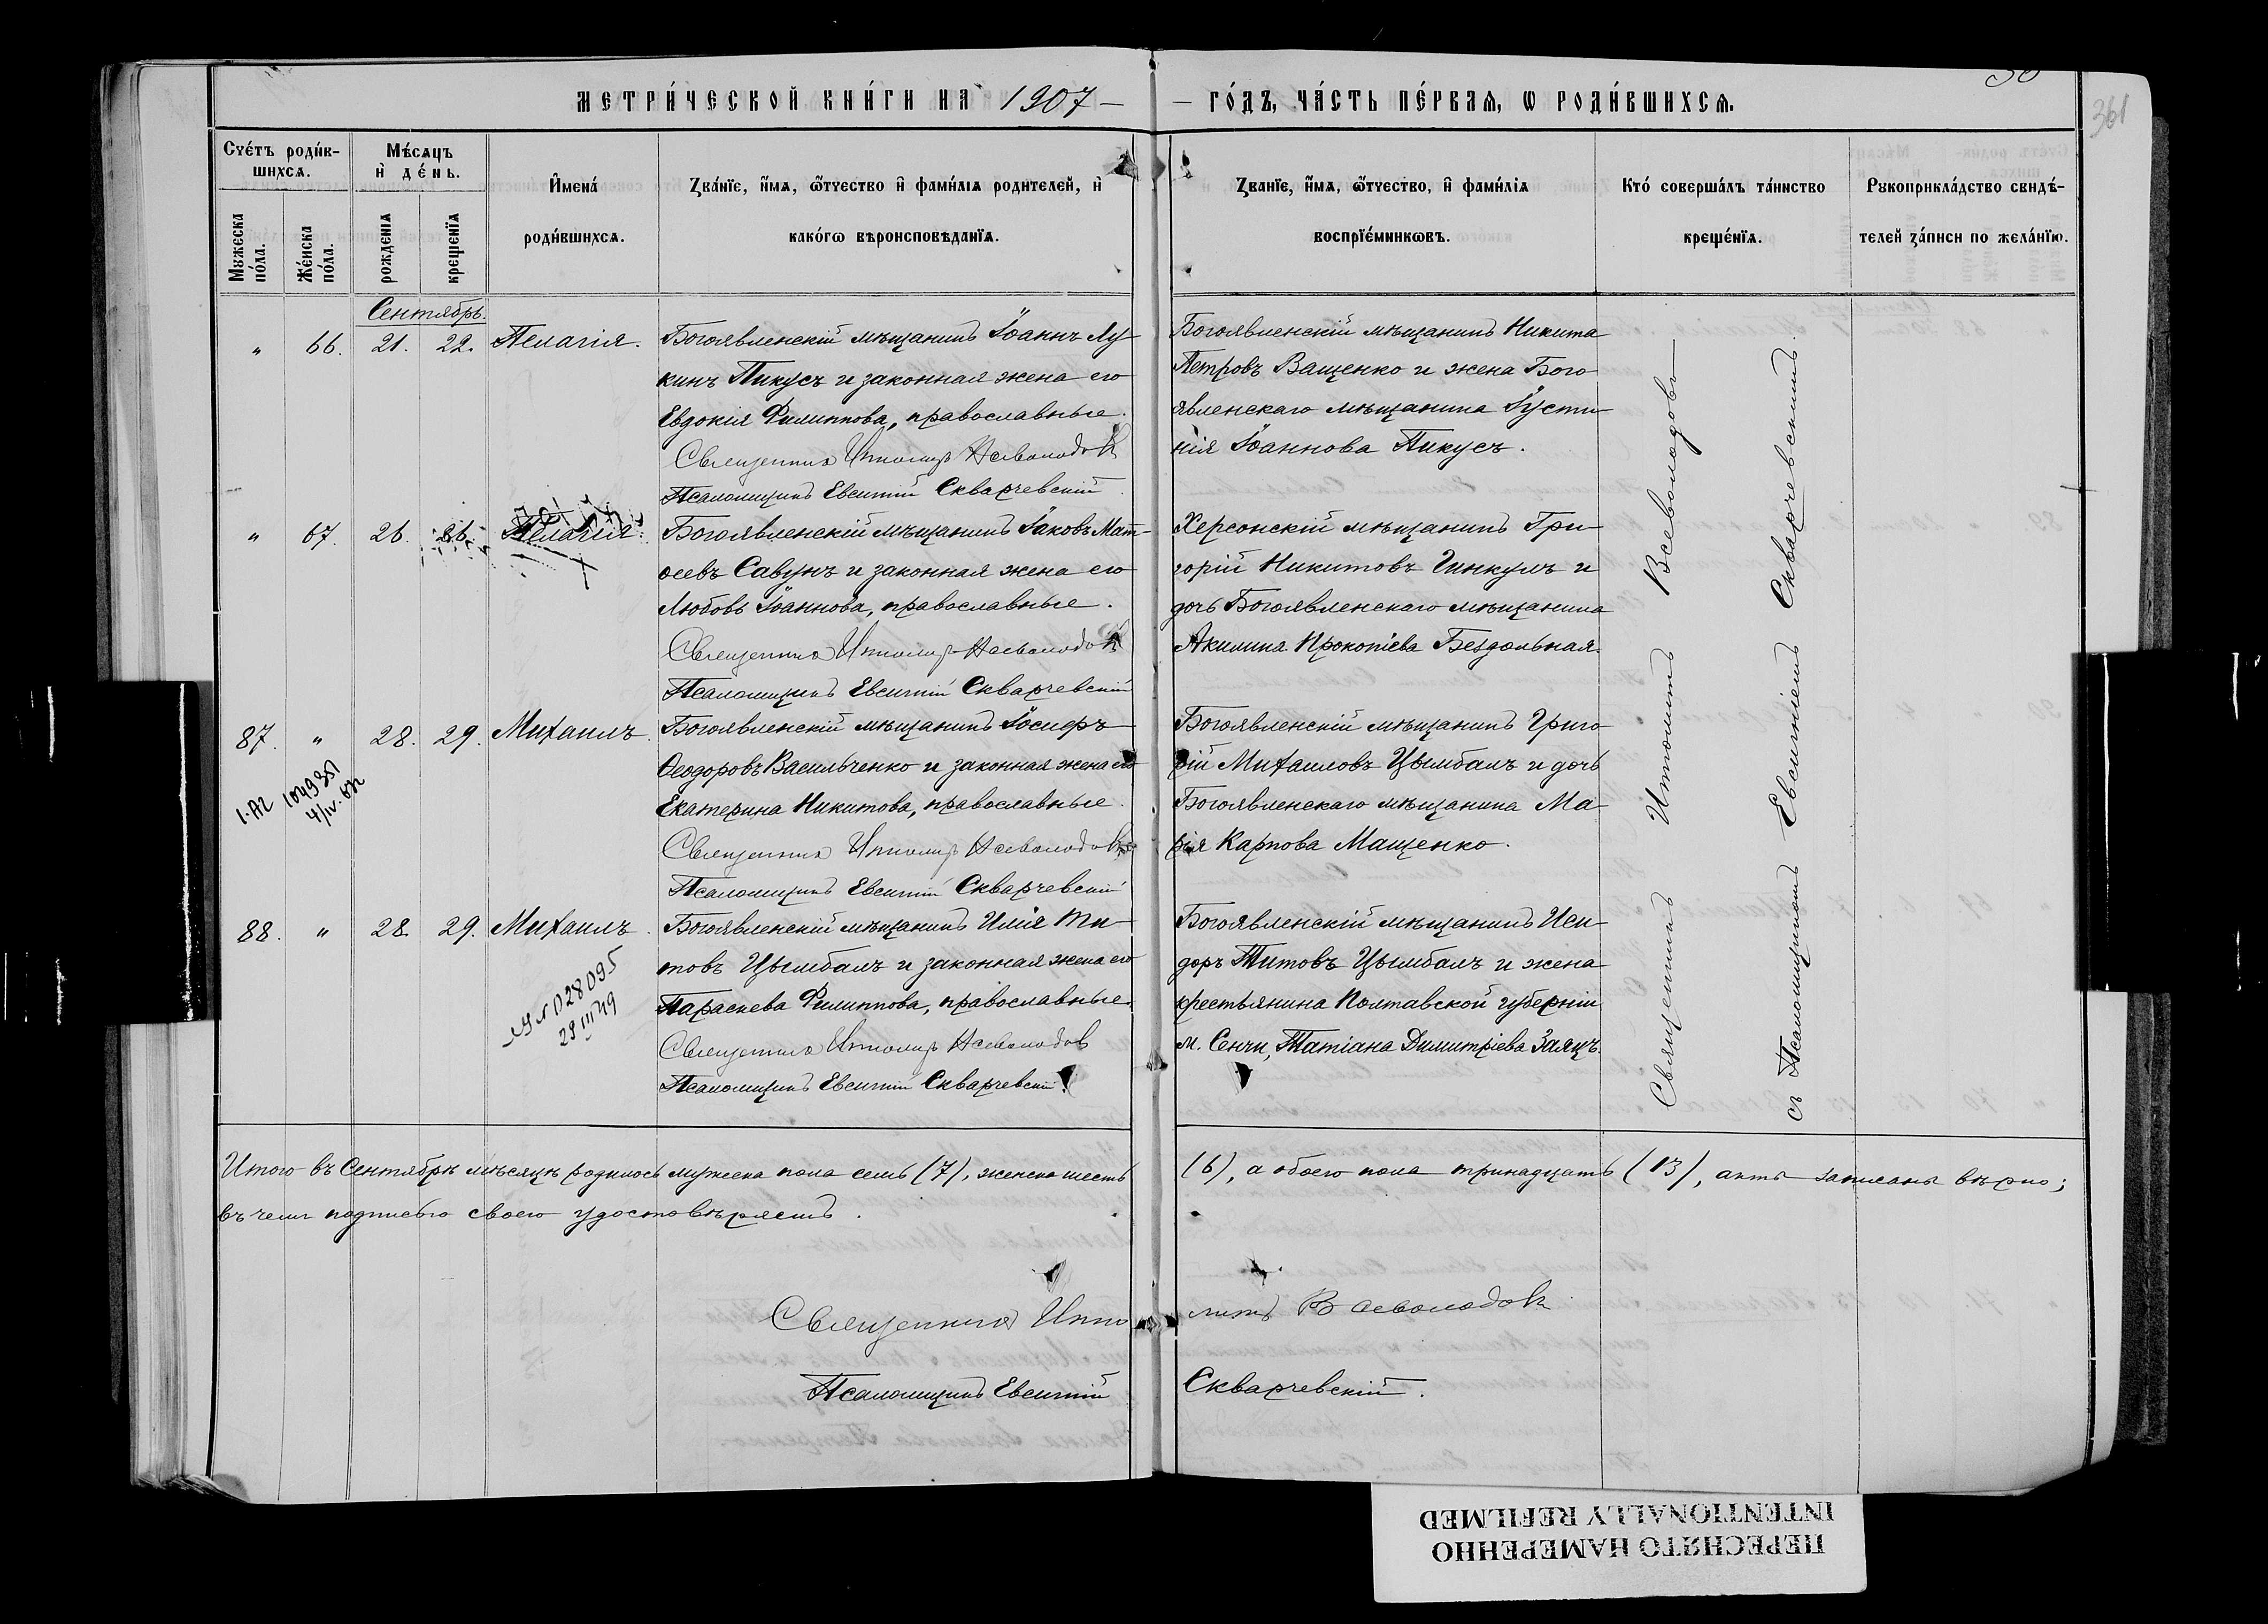 МЕТРИ́ЧЕСКОЙ КНИ́ГИ НА 1907 — — ГО́ДЪ, ЧА́СТЬ ПЕ́РВАѦ, Ѡ РОДИ́ВШИХСѦ.
361
Сче́тъ роди́в-
шихсѧ.
Мꙋжеска
по́ла.
Же́нска
по́ла.
Мѣ́сѧцъ
и҆ де́нь.
рожденїѧ
крещенїѧ
И҆мена́
роди́вшихсѧ.
Зва́нїе, и҆́мѧ, ѻ҆́тчество и҆ фами́лїѧ родителей, и҆
како́гѡ вѣроисповѣданїѧ.
Званїе, и҆́мѧ, ѻ҆́тчество, и҆ фами́лїѧ
воспрїе́мникѡвъ.
Кто́ соверша́лъ та́инство
креще́нїѧ.
Рꙋкоприкла́дство свидѣ́-
телей за́писи по жела́нїю.
Сентябрь.
" 66. 21. 22. Пелагія.
Богоявленскій мѣщанинъ Іоаннъ Лу-
кинъ Пикусъ и законная жена его
Евдокія Филиппова, православные.
Священникъ Ипполитъ Всеволодовъ
Псаломщикъ Евсигній Скварчевскій
Богоявленскій мѣщанинъ Никита
Петровъ Ващенко и жена Бого-
явленскаго мѣщанина Іусти-
нія Іоаннова Пикусъ.
" 67. 26. 26. Пелагія.
Богоявленскій мѣщанинъ Іаковъ Мат-
ѳеевъ Савунъ и законная жена его
Любовь Іоаннова, православные.
Священникъ Ипполитъ Всеволодовъ
Псаломщикъ Евсигній Скварчевскій
Херсонскій мѣщанинъ Гри-
горій Никитовъ Гинкулъ и
дочь Богоявленскаго мѣщанина
Акилина Прокопіева Бездольная.
87. " 28. 29. Михаилъ.
Богоявленскій мѣщанинъ Іосифъ
Ѳеодоровъ Васильченко и законная жена его
Екатерина Никитова, православные.
Священникъ Ипполитъ Всеволодовъ
Псаломщикъ Евсигній Скварчевскій
Богоявленскій мѣщанинъ Григо-
рій Михаиловъ Цымбалъ и дочь
Богоявленскаго мѣщанина Ма-
рія Карпова Мащенко.
88. " 28. 29. Михаилъ.
028095
29 III 49
Богоявленскій мѣщанинъ Илія Ти-
товъ Цымбалъ и законная жена его
Параскева Филиппова, православные.
Священникъ Ипполитъ Всеволодовъ
Псаломщикъ Евсигній Скварчевскій
Богоявленскій мѣщанинъ Иси-
доръ Титовъ Цымбалъ и жена
крестьянина Полтавской губерніи
м. Сенчи, Татіана Димитріева Заяцъ.
Священникъ Ипполитъ Всеволодовъ
съ Псаломщикомъ Евсигніемъ Скварчевскимъ.
Итого въ Сентябрѣ мѣсяцѣ родилось мужеска пола семь (7), женска шесть (6), а обоего пола тринадцать (13), акты записаны вѣрно;
въ чемъ подписью своею удостовѣряемъ.
Священникъ Ипполитъ Всеволодовъ
Псаломщикъ Евсигній Скварчевскій.
ПЕРЕСНЯТО НАМЕРЕННО
INTENTIONALLY REFILMED